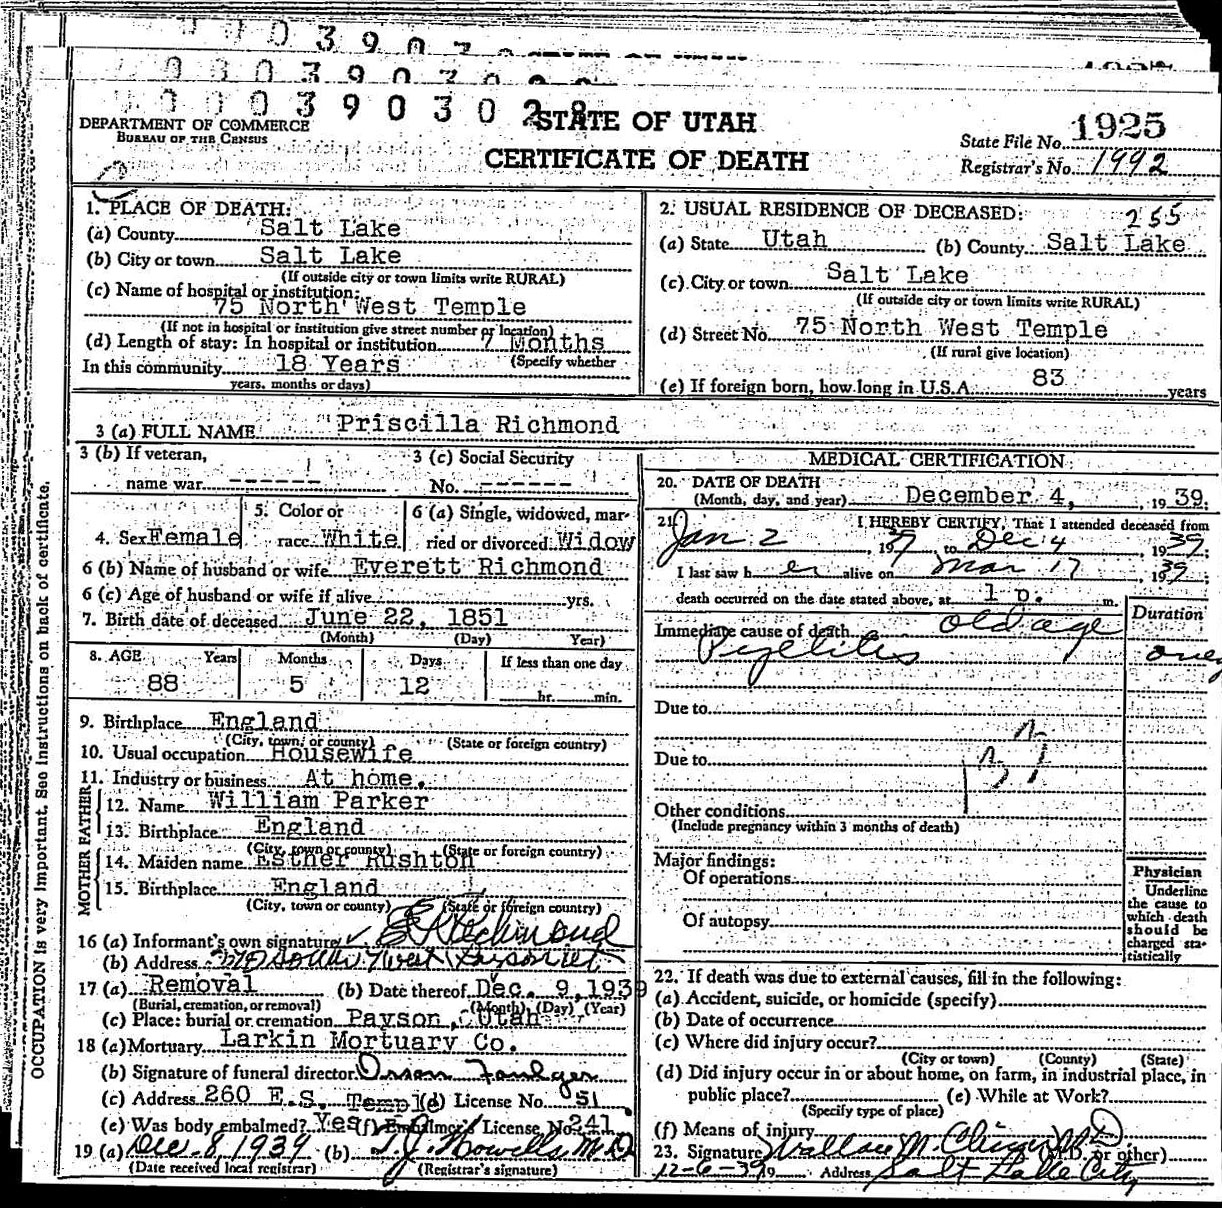 0 0 0 3 9 0 3 0 2 8
STATE OF UTAH
CERTIFICATE OF DEATH
DEPARTMENT OF COMMERCE
BUREAU OF THE CENSUS
State File No. 1925
Registrar's No. 1992
1. PLACE OF DEATH:
(a) County Salt Lake
(b) City or town Salt Lake
(If outside city or town limits write RURAL)
(c) Name of hospital or institution:
75 North West Temple
(If not in hospital or institution give street number or location)
(d) Length of stay: In hospital or institution 7 Months
(Specify whether
In this community 18 Years
years, months or days)
2. USUAL RESIDENCE OF DECEASED: 255
(a) State Utah (b) County Salt Lake
(c) City or town Salt Lake
(If outside city or town limits write RURAL)
(d) Street No. 75 North West Temple
(If rural give location)
(e) If foreign born, how long in U.S.A. 83 years
3 (a) FULL NAME Priscilla Richmond
3 (b) If veteran, name war ------
3 (c) Social Security No. ------
4. Sex Female
5. Color or race White
6 (a) Single, widowed, married or divorced Widow
6 (b) Name of husband or wife Everett Richmond
6 (c) Age of husband or wife if alive yrs.
7. Birth date of deceased June 22, 1851
(Month) (Day) Year)
8. AGE Years Months Days If less than one day
88 5 12 hr. min.
9. Birthplace England
(City, town, or county) (State or foreign country)
10. Usual occupation Housewife
11. Industry or business At home.
FATHER
12. Name William Parker
13. Birthplace England
(City, town or county) (State or foreign country)
MOTHER
14. Maiden name Esther Rushton
15. Birthplace England
(City, town or county) (State or foreign country)
16 (a) Informant's own signature Richmond
(b) Address South West Payson Ut
17 (a) Removal (b) Date thereof Dec. 9, 1939
(Burial, cremation, or removal) (Month) (Day) (Year)
(c) Place: burial or cremation Payson, Utah
18 (a) Mortuary Larkin Mortuary Co.
(b) Signature of funeral director Orson Foulger
(c) Address 260 E.S. Temple (d) License No. 51
(e) Was body embalmed? Yes (f) Embalmer License No. 241
19 (a) Dec 8, 1939 (b) T.J. Howells M.D.
(Date received local registrar) (Registrar's signature)
MEDICAL CERTIFICATION
20. DATE OF DEATH
(Month, day, and year) December 4, 1939.
21. I HEREBY CERTIFY, That I attended deceased from
Jan 2, 1937 to Dec 4, 1939;
I last saw her alive on Mar 17, 1939;
death occurred on the date stated above, at 1 p. m.
Duration
Immediate cause of death old age
Pyelitis
Due to
Due to
Other conditions
(Include pregnancy within 3 months of death)
Major findings:
Of operations
Of autopsy
Physician
Underline the cause to which death should be charged statistically
22. If death was due to external causes, fill in the following:
(a) Accident, suicide, or homicide (specify)
(b) Date of occurrence
(c) Where did injury occur?
(City or town) (County) (State)
(d) Did injury occur in or about home, on farm, in industrial place, in
public place? (e) While at Work?
(Specify type of place)
(f) Means of injury
23. Signature M. MD (M.D. or other)
12-6-39 19 Address Salt Lake City
OCCUPATION is very important. See instructions on back of certificate.